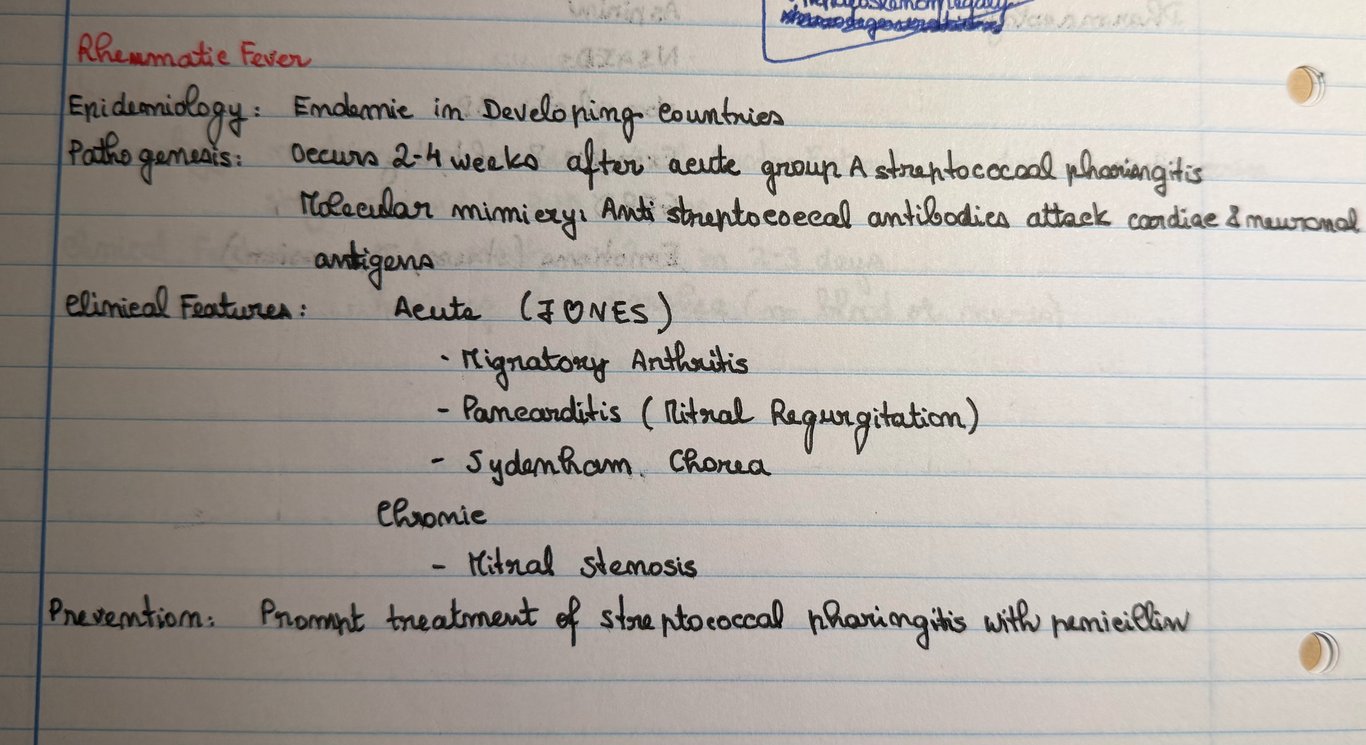 Rheumatic Fever
Epidemiology: Endemic in Developing countries
Pathogenesis: Occurs 2-4 weeks after acute group A streptococcal phariengitis
Molecular mimicry: Anti streptococcal antibodies attack cardiac & neuronal
antigens
Clinical Features: Acute (JONES)
· Migratory Arthritis
- Pancarditis (Mitral Regurgitation)
- Sydenham Chorea
Chronic
- Mitral Stenosis
Prevention: Prompt treatment of streptococcal phariengitis with penicillin